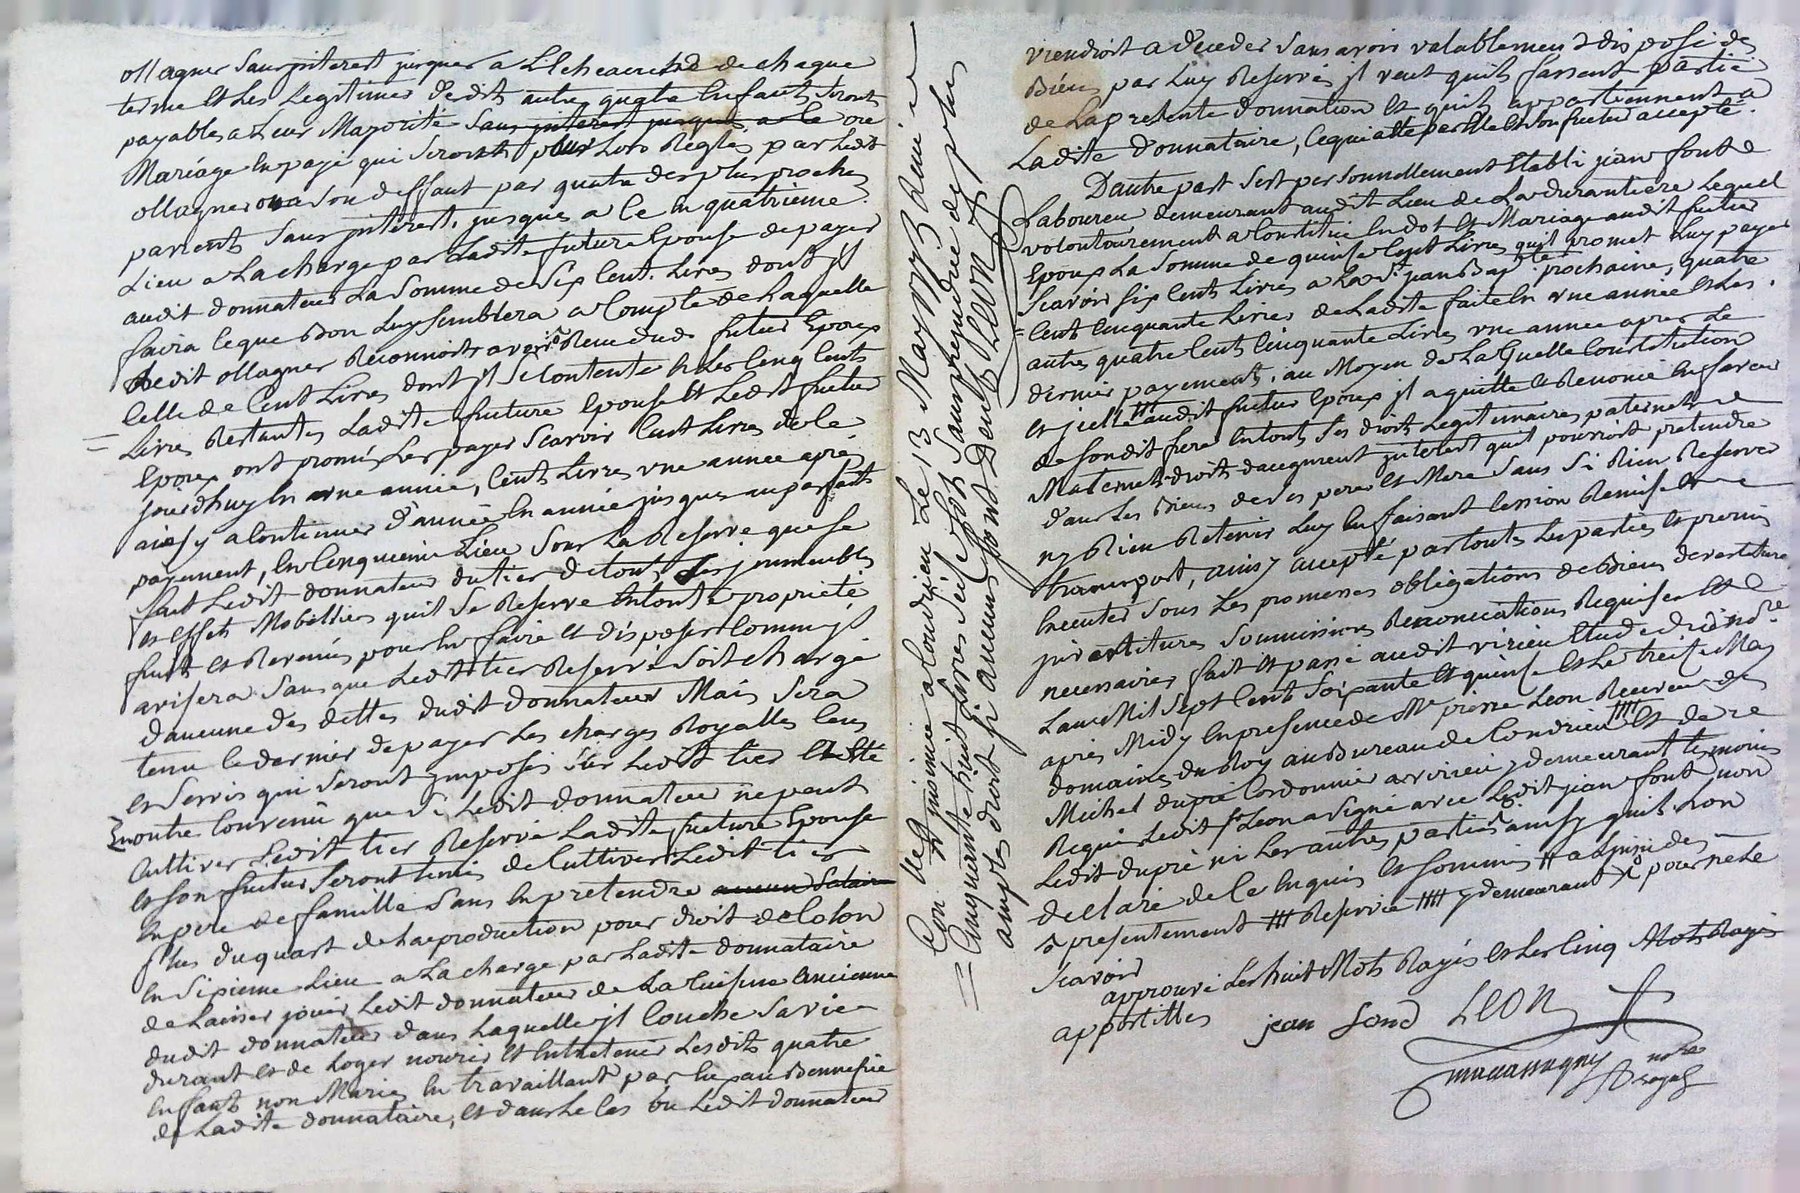 ollagner sans jnterest jusques a L'Echeance de chaque
terme et Les Legitimes desdits autres quatre Enfants seront
payables a Leur Majorité sans jnterest jusques a ce ou
Mariage En payé qui seront pour Lors Reglés par Ledit
ollagner ou a son deffaut par quatre des plus proches
parients sans jnterest, jusques a ce En quatrieme
Lieu a La charge par Ladite future Epouse de payer
audit donnateur La somme de six Cent Livres dont jl
faira ce que Bon Luy semblera a Compte de Laquelle
Ledit ollagner Reconnoit avoir Receu dud. futur Epoux
Celle de Cent Livres dont jl se Contente & Les Cinq Cents
Livres Restantes Ladite future Epouse Et Ledit futur
Epoux ont promis Les payer scavoir Cent Livres de Ce
jourdhuy En une année, Cent Livres une année aprés
ainsy a Continuer d'année En année jusques au parfait
payement, En Cinquieme Lieu sous La Reserve que se
fait Ledit donnateur du tier de tous ses jmmeubles
et Effets Mobilliers quil se Reserve En toute proprieté
fruits et Revenus pour En faire et disposer Comme jl
avisera sans que Ledit tier Reservé soit chargé
d'aucune des dettes dudit donnateur Mais sera
tenu ce dernier de payer Les charges Royalles Cens
et servis qui seront jmposés sur Ledit tier
En outre Convenu que si Ledit donnateur ne peut
Cultiver Ledit tier Reservé Ladite future Epouse
et son futur seront tenus de Cultiver Ledit tier
En pere de famille sans En pretendre aucun salaire
plus du quart de La production pour droit de Colon
En sixieme Lieu a La charge par Ladite donnataire
de Laisser jouir Ledit donnateur de La Cuisine Ancienne
dudit donnateur dans Laquelle jl Couche sa vie
durant et de Loger nourir et Entretenir Lesdits quatre
Enfants non Mariés En travaillant par Eux au Bennefice
de Ladite donnataire, Et dans Le Cas ou Ledit donnateur
Con ... jnsinué a Condrieu Le 13 May 1775 Reçu
Cinquante huit Livres six sols sans prejudice de plus
amples droits si aucuns sont deubs LEON
viendroit a deceder sans avoir valablement disposé des
Biens par Luy Reservés jl veut quils fassent partie
de La presente donnation Et quils appartiennent a
Ladite donnataire, Ce qui a été par Elle et son futur accepté.
D'autre part s'est personnellement Etabli jean font
Laboureur demeurant audit Lieu de La durantiere Lequel
volontairement a Constitué En dot Et Mariage audit futur
Epoux La somme de quinse Cent Livres quil promet Luy payer
Scavoir six Cents Livres a La St. jean Bapte. prochaine, quatre
Cent Cinquante Livres de Ladite faite En une année Et Les
autres quatre Cent Cinquante Livres une année apres Le
dernier payement, au Moyen de La quelle Constitution
Et jcelle audit futur Epoux jl a quitté & Renoncé En faveur
de sondit frere En tous ses droits Legitimaires paternels
Maternels droits d'augment jnterest quil pourroit pretendre
dans Les Biens de ses pere et Mere sans si Rien Reserver
ny Rien Retenir Luy En faisant Cession Remise
transport, ainsy accepté par toutes Les parties Et promis
Executer sous Les promesses obligations de Biens devestiture
jnvestiture soumissions Renonciations Requises Et
necessaires fait Et passé audit virieu Etude dudit notre.
Lan Mil sept Cent soixante Et quinse Et Le treise May
aprés Midy En presence de Me. pierre Leon Receveur des
domaines du Roy au Bureau de Condrieu Et de
Michel dupré Cordonnier a virieu y demeurant temoins
Requis Ledit sr. Leon a signé avec Ledit jean font non
Ledit dupré ni Les autres parties ainsy quil L'on
declaré de Ce Enquis Et sommés # a La ... des
presentement ### Reservée #### y demeurant pour ne Le
scavoir
approuvé Les huit Mots Rayés Et Les Cinq Mots Rayés
appostilles
jean fond LEON
notre
royal